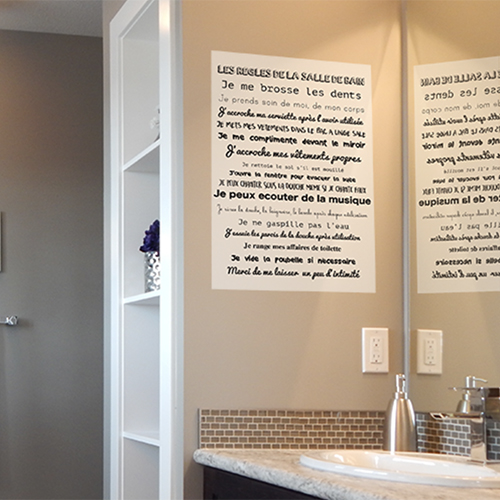 LES REGLES DE LA SALLE DE BAIN
Je me brosse les dents
Je prends soin de moi, de mon corps
J'accroche ma serviette après l'avoir utilisée
JE METS MES VETEMENTS DANS LE BAC A LINGE SALE
Je me complimente devant le miroir
J'accroche mes vêtements propres
Je nettoie le sol s'il est mouillé
J'ouvre la fenêtre pour évacuer la buée
JE PEUX CHANTER SOUS LA DOUCHE MEME SI JE CHANTE FAUX
Je peux ecouter de la musique
Je rince la douche, la baignoire, le lavabo après chaque utilisation
Je ne gaspille pas l'eau
J'essuie les parois de la douche après utilisation
Je range mes affaires de toilette
Je vide la poubelle si nécessaire
Merci de me laisser un peu d'intimité